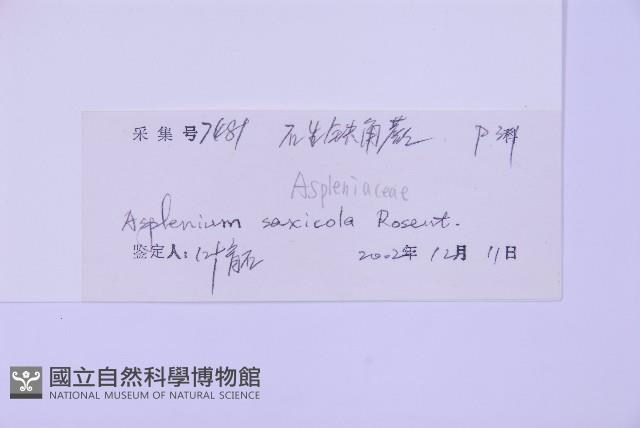 采集号 7481 石生铁角蕨 P.3科
Aspleniaceae
Asplenium saxicola Rosent.
鉴定人: 2002年 12月 11日
國立自然科學博物館
NATIONAL MUSEUM OF NATURAL SCIENCE